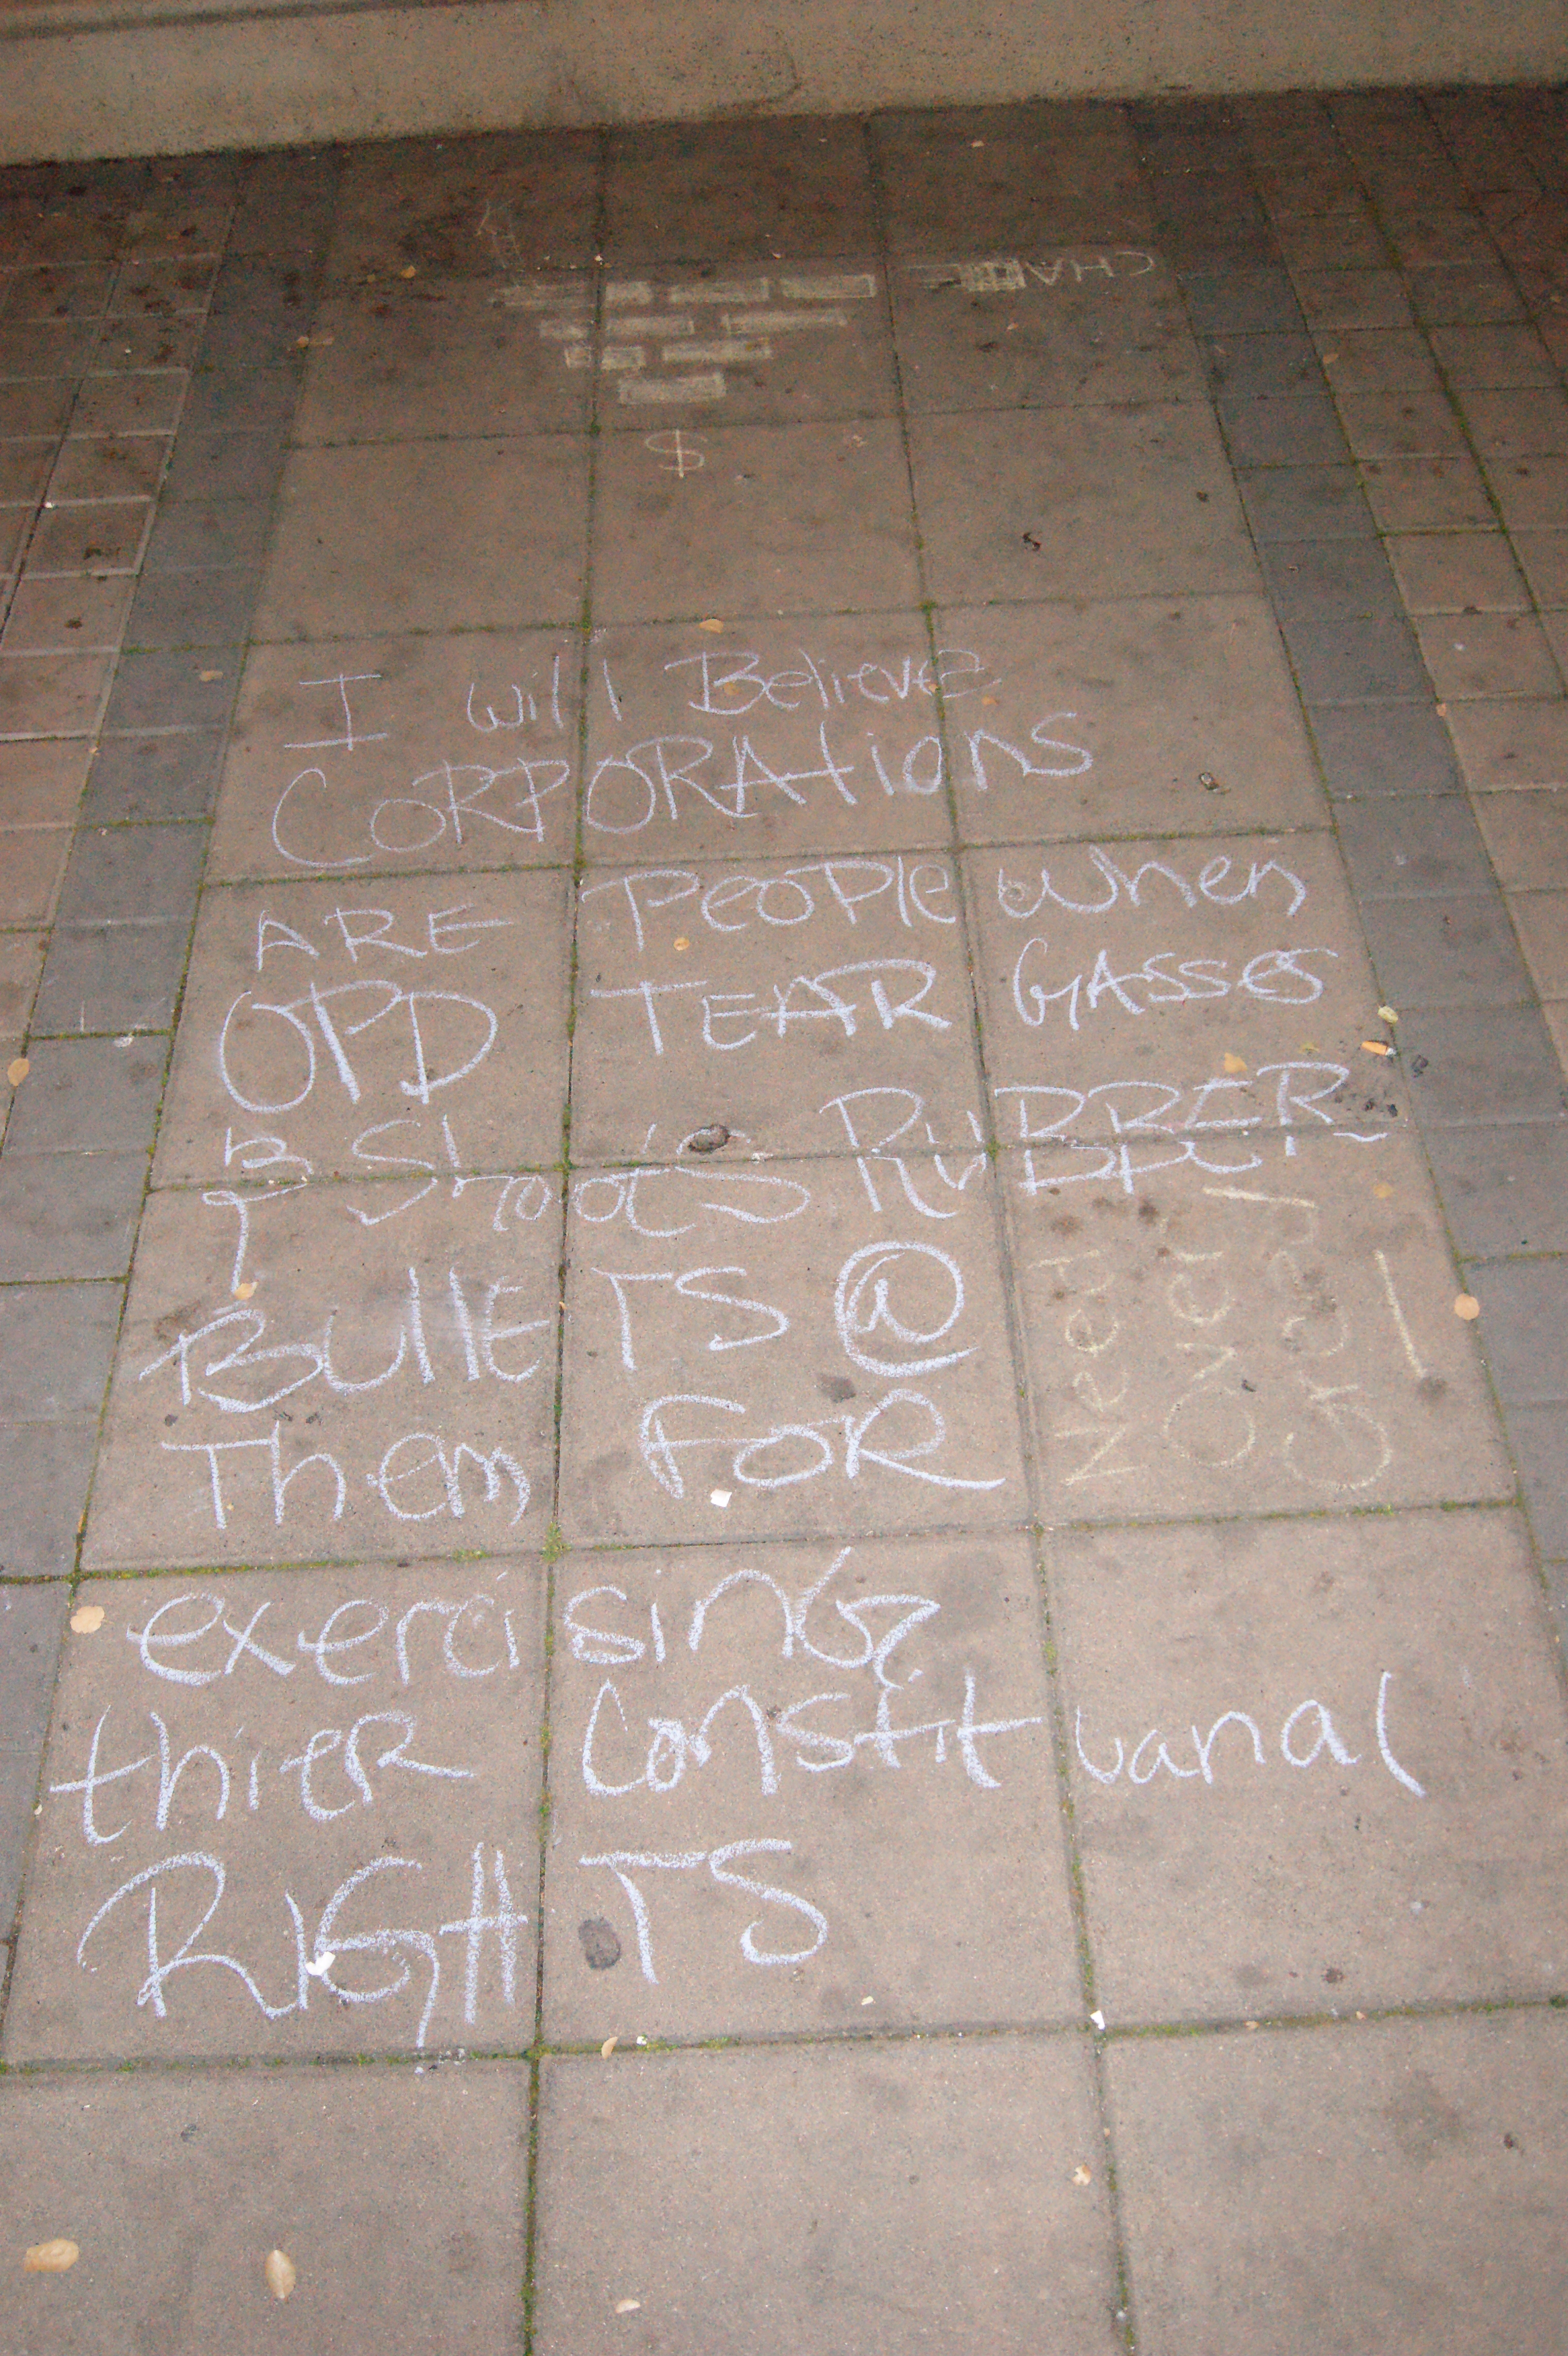 CHALK
$
I will Believe
CORPORAtions
ARE PEOPle when
OPD TEAR GASSES
& ShootS RUBBER
BUllETS @
Them FOR
exercising
thier Constituanal
RIGHTS
Need
Over
Greed
!